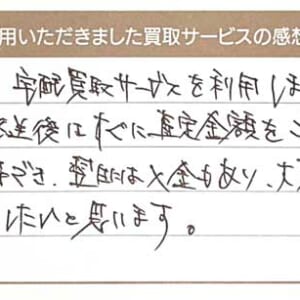 用いただきました買取サービスの感想
宅配買取サービスを利用しま
送後はすぐに査定金額をご
でき、翌日には入金もあり、大
したいと思います。